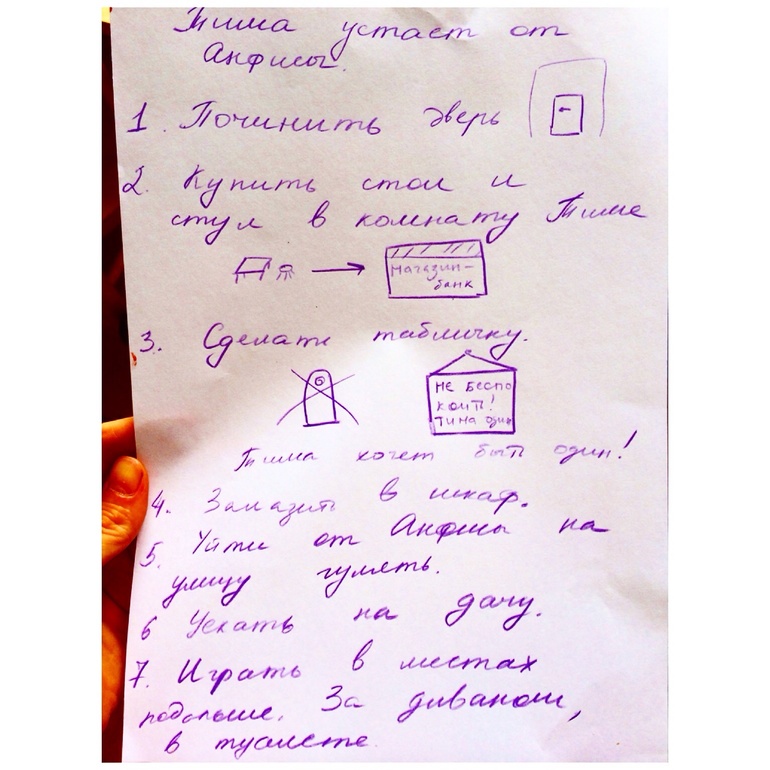 Тима устает от
Анфисы.
1. Починить дверь
2. Купить стол и
стул в комнату Тиме
магазин-
банк
3. Сделать табличку.
не беспо
коить!
Тима один
Тима хочет быть один!
4. Залазить в шкаф.
5. Уйти от Анфисы на
улицу гулять.
6 Уехать на дачу.
7. Играть в местах
подольше. За диваном,
в туалете